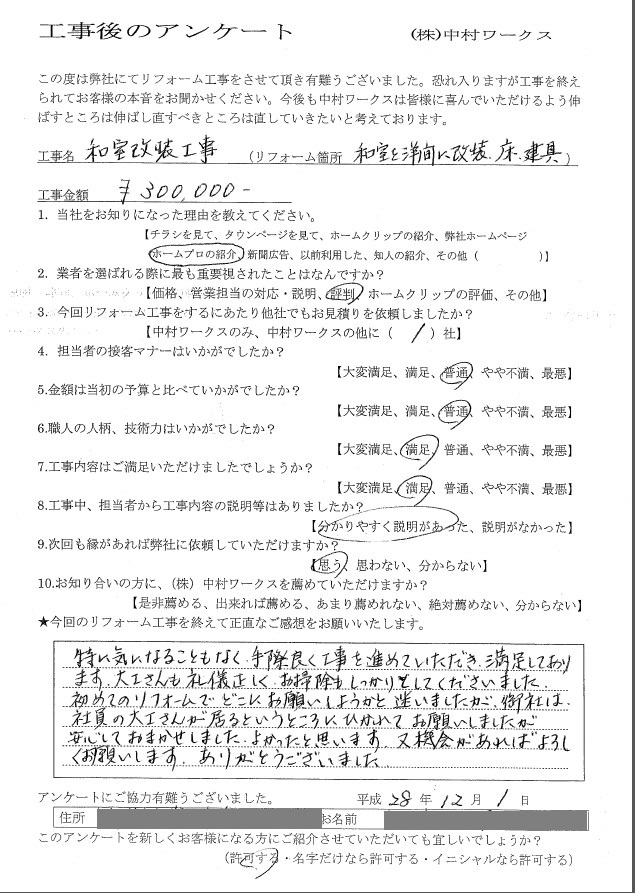 工事後のアンケート　　　　　(株)中村ワークス
この度は弊社にてリフォーム工事をさせて頂き有難うございました。恐れ入りますが工事を終え
られてお客様の本音をお聞かせください。今後も中村ワークスは皆様に喜んでいただけるよう伸
ばすところは伸ばし直すべきところは直していきたいと考えております。
工事名　和室改装工事　（リフォーム箇所　和室を洋間に改装、床、建具）
工事金額　¥300,000-
1. 当社をお知りになった理由を教えてください。
【チラシを見て、タウンページを見て、ホームクリップの紹介、弊社ホームページ
ホームプロの紹介、新聞広告、以前利用した、知人の紹介、その他（　　　　）】
2. 業者を選ばれる際に最も重要視されたことはなんですか？
【価格、営業担当の対応・説明、評判、ホームクリップの評価、その他】
3. 今回リフォーム工事をするにあたり他社でもお見積りを依頼しましたか？
【中村ワークスのみ、中村ワークスの他に（　/　）社】
4. 担当者の接客マナーはいかがでしたか？
【大変満足、満足、普通、やや不満、最悪】
5.金額は当初の予算と比べていかがでしたか？
【大変満足、満足、普通、やや不満、最悪】
6.職人の人柄、技術力はいかがでしたか？
【大変満足、満足、普通、やや不満、最悪】
7.工事内容はご満足いただけましたでしょうか？
【大変満足、満足、普通、やや不満、最悪】
8.工事中、担当者から工事内容の説明等はありましたか？
【分かりやすく説明があった、説明がなかった】
9.次回も縁があれば弊社に依頼していただけますか？
【思う、思わない、分からない】
10.お知り合いの方に、（株）中村ワークスを薦めていただけますか？
【是非薦める、出来れば薦める、あまり薦めれない、絶対薦めない、分からない】
★今回のリフォーム工事を終えて正直なご感想をお願いいたします。
特に気になることもなく、手際良く工事を進めていただき、満足しており
ます。大工さんも礼儀正しく、お掃除もしっかりとしてくださいました。
初めてのリフォームで、どこにお願いしようかと迷いましたが、御社は、
社員の大工さんが居るというところにひかれて、お願いしましたが
安心しておまかせしました。よかったと思います。又機会があればよろし
くお願いします。ありがとうございました。
アンケートにご協力有難うございました。　　　平成 28 年 12 月 1 日
住所　　　お名前
このアンケートを新しくお客様になる方にご紹介させていただいても宜しいでしょうか？
（許可する・名字だけなら許可する・イニシャルなら許可する）